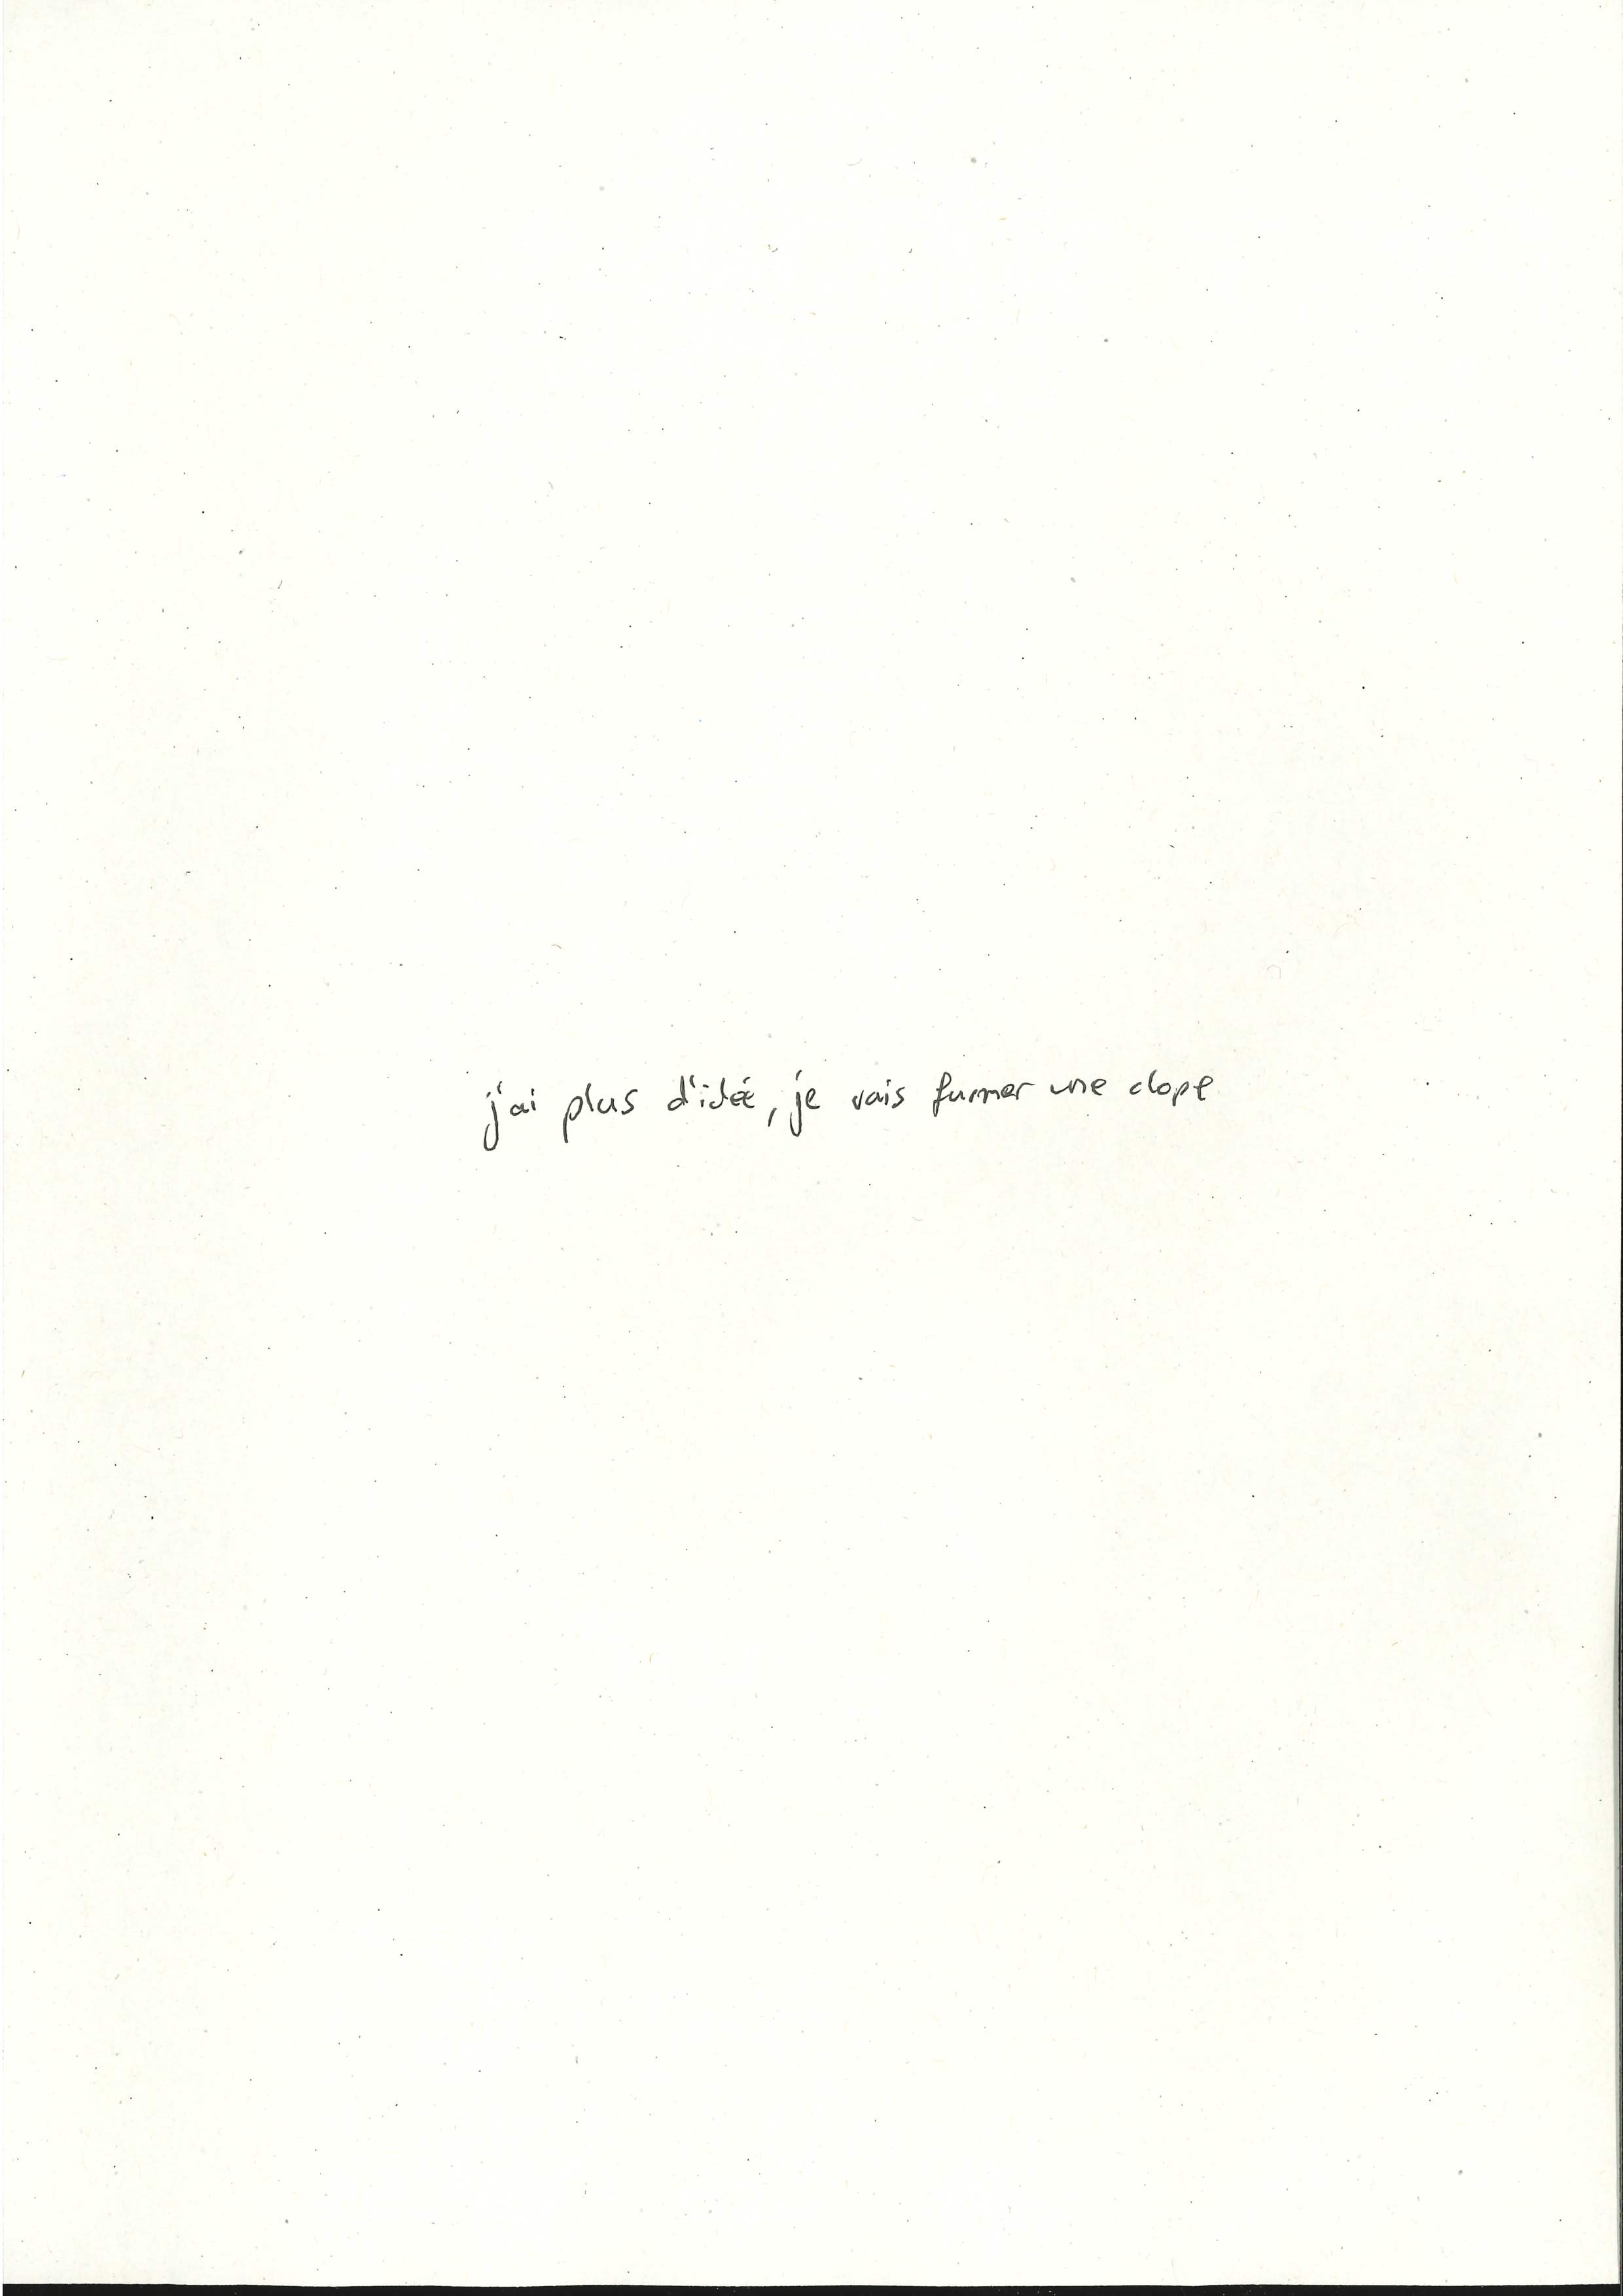 j'ai plus d'idée, je vais fumer une clope